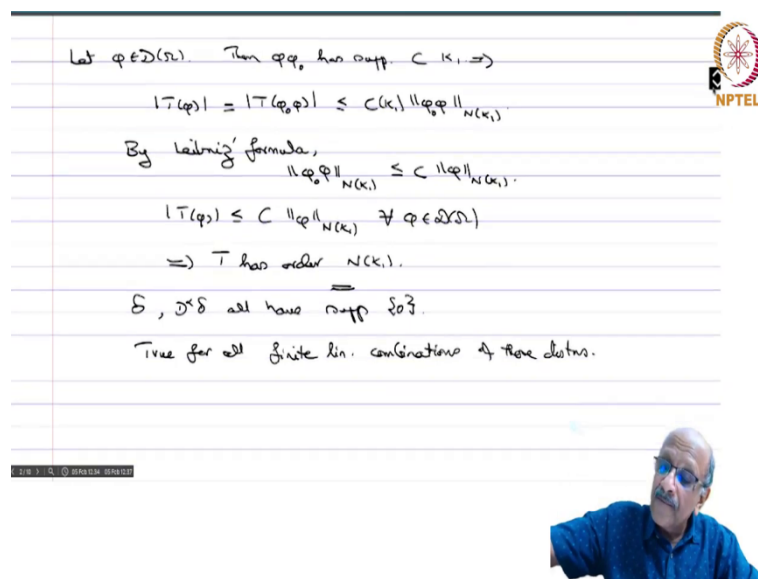 Let φ ∈ D(Ω). Then φφ₀ has supp. ⊂ K₁ ⇒
|T(φ)| = |T(φ₀φ)| ≤ C(K₁) ‖φ₀φ‖_N(K₁).
By Leibniz' formula,
‖φ₀φ‖_N(K₁) ≤ C ‖φ‖_N(K₁).
|T(φ)| ≤ C ‖φ‖_N(K₁) ∀ φ ∈ D(Ω)
⇒ T has order N(K₁).
δ, D^α δ all have supp {0}.
True for all finite lin. combinations of these distns.
NPTEL
2/10
05 Feb 12:34 05 Feb 12:37